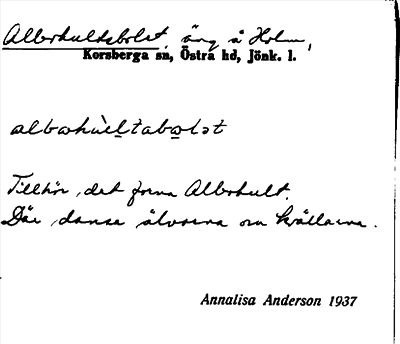 Alberhultsbolet, äng å Holm,
Korsberga sn, Östra hd, Jönk. l.
Tillhör det forna Alberhult.
Där dansa älvorna om kvällarna.
Annalisa Anderson 1937